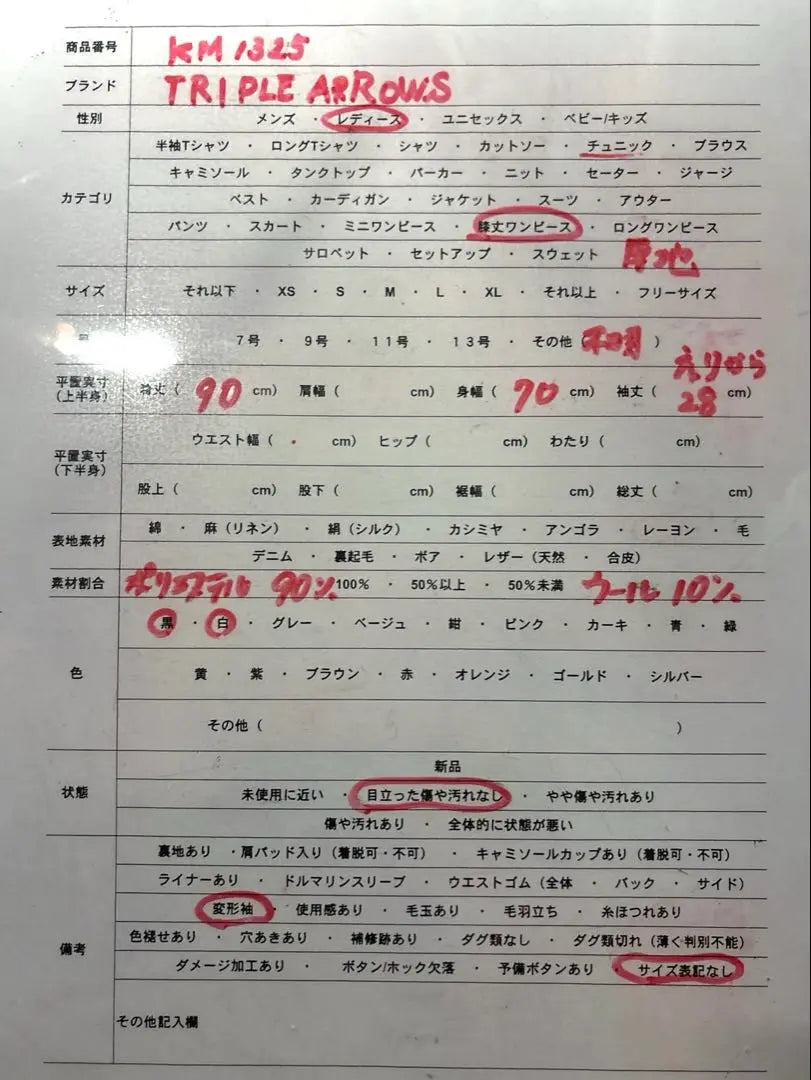 商品番号 KM1325
ブランド TRIPLE ARROWS
性別 メンズ ・ レディース ・ ユニセックス ・ ベビー/キッズ
半袖Tシャツ ・ ロングTシャツ ・ シャツ ・ カットソー ・ チュニック ・ ブラウス
キャミソール ・ タンクトップ ・ パーカー ・ ニット ・ セーター ・ ジャージ
カテゴリ ベスト ・ カーディガン ・ ジャケット ・ スーツ ・ アウター
パンツ ・ スカート ・ ミニワンピース ・ 膝丈ワンピース ・ ロングワンピース
サロペット ・ セットアップ ・ スウェット 厚地
サイズ それ以下 ・ XS ・ S ・ M ・ L ・ XL ・ それ以上 ・ フリーサイズ
号 7号 ・ 9号 ・ 11号 ・ 13号 ・ その他 ( 不明 )
えりから
平置実寸 (上半身) 着丈 ( 90 cm) 肩幅 ( cm) 身幅 ( 70 cm) 袖丈 ( 28 cm)
ウエスト幅 ( cm) ヒップ ( cm) わたり ( cm)
平置実寸 (下半身)
股上 ( cm) 股下 ( cm) 裾幅 ( cm) 総丈 ( cm)
表地素材 綿 ・ 麻 (リネン) ・ 絹 (シルク) ・ カシミヤ ・ アンゴラ ・ レーヨン ・ 毛
デニム ・ 裏起毛 ・ ボア ・ レザー (天然 ・ 合皮)
素材割合 ポリエステル 90% 100% ・ 50%以上 ・ 50%未満 ウール 10%
黒 ・ 白 ・ グレー ・ ベージュ ・ 紺 ・ ピンク ・ カーキ ・ 青 ・ 緑
色 黄 ・ 紫 ・ ブラウン ・ 赤 ・ オレンジ ・ ゴールド ・ シルバー
その他 ( )
新品
状態 未使用に近い ・ 目立った傷や汚れなし ・ やや傷や汚れあり
傷や汚れあり ・ 全体的に状態が悪い
裏地あり ・ 肩パッド入り (着脱可・不可) ・ キャミソールカップあり (着脱可・不可)
ライナーあり ・ ドルマリンスリーブ ・ ウエストゴム (全体 ・ バック ・ サイド)
変形袖 ・ 使用感あり ・ 毛玉あり ・ 毛羽立ち ・ 糸ほつれあり
備考 色褪せあり ・ 穴あきあり ・ 補修跡あり ・ ダグ類なし ・ ダグ類切れ (薄く判別不能)
ダメージ加工あり ・ ボタン/ホック欠落 ・ 予備ボタンあり ・ サイズ表記なし
その他記入欄